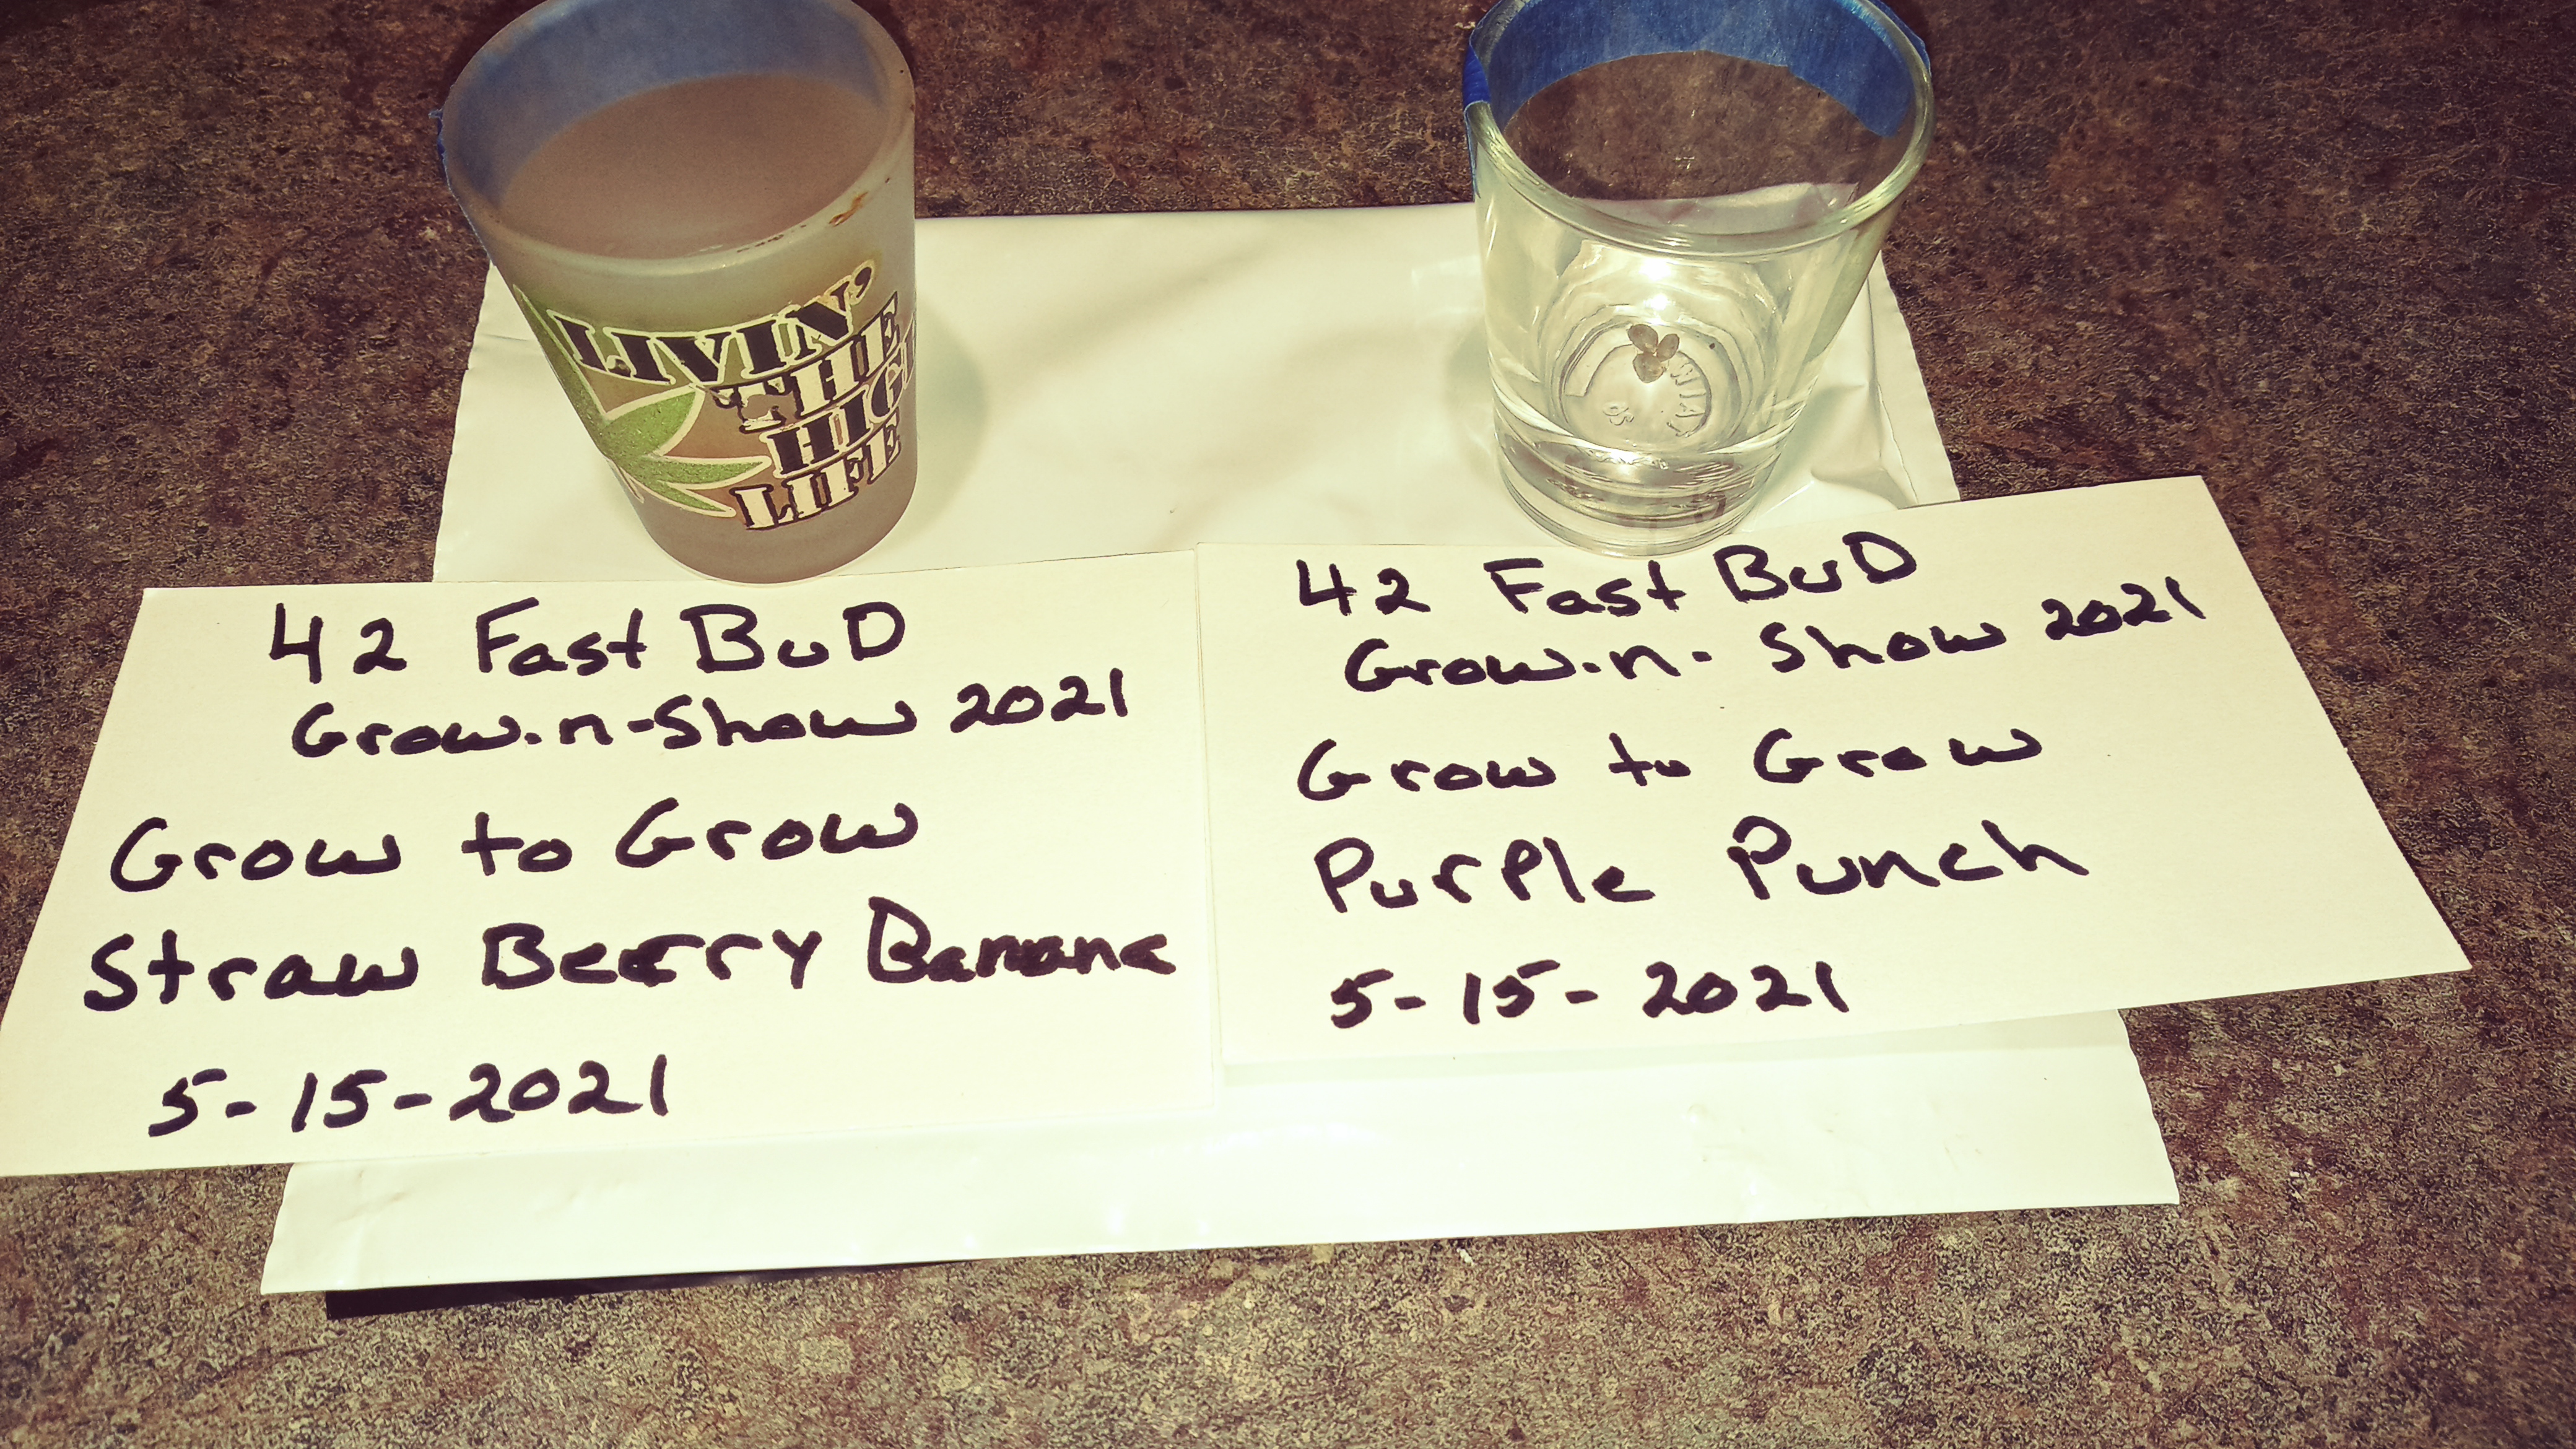 LIVIN'
THE
HIG
LIFE
42 Fast BuD
Grow-n-Show 2021
Grow to Grow
Straw Berry Banana
5-15-2021
42 Fast BuD
Grow-n-Show 2021
Grow to Grow
Purple Punch
5-15-2021